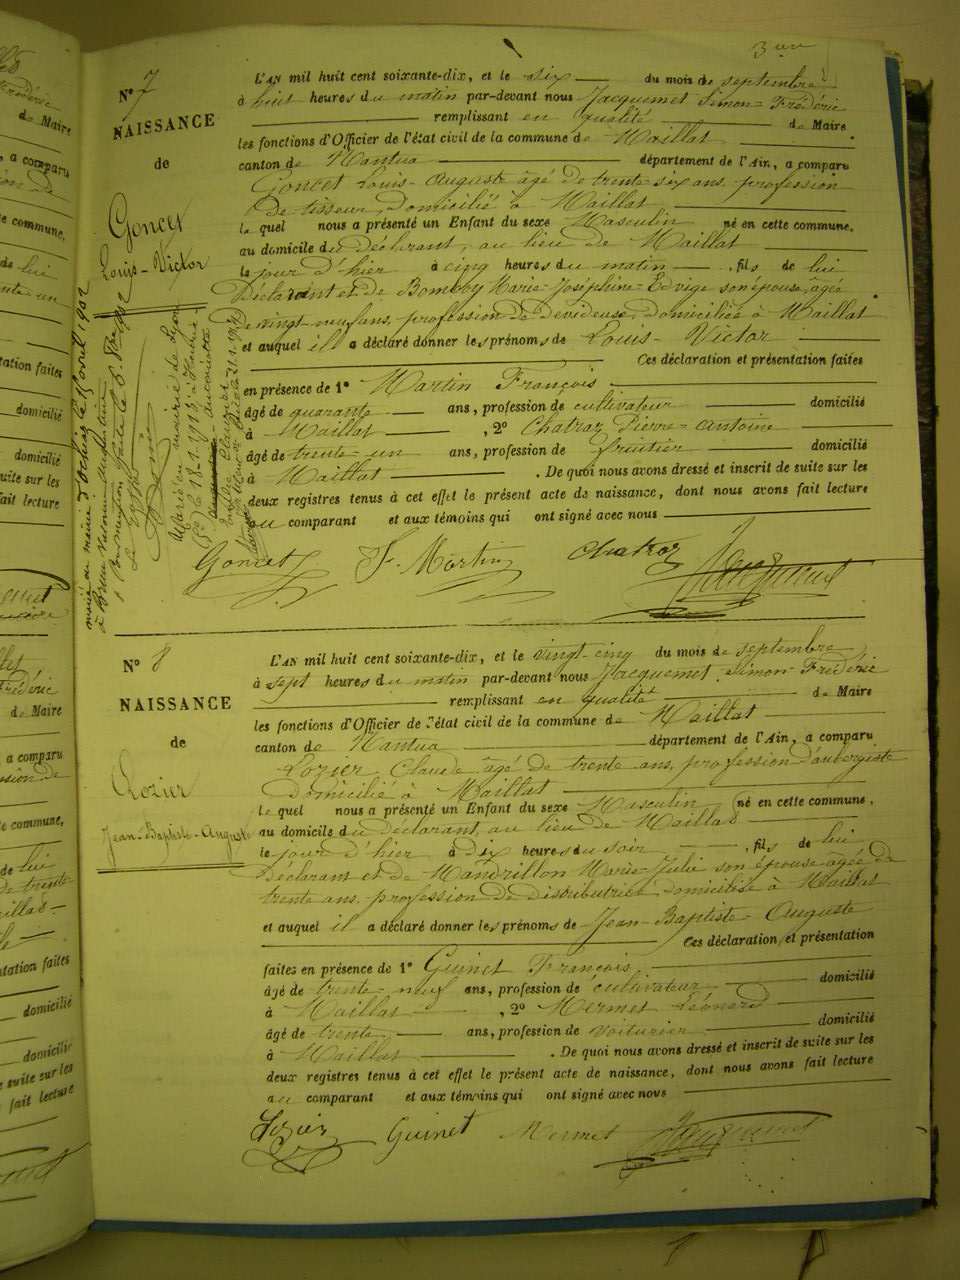 N° 7
NAISSANCE
de
Goncet
Louis-Victor
L'AN mil huit cent soixante-dix, et le six du mois de septembre
à huit heures du matin par-devant nous Jacquemet Simon-Frédéric
remplissant en qualité de Maire
les fonctions d'Officier de l'état civil de la commune de Maillat
canton de Nantua département de l'Ain, a comparu
Goncet Louis-Auguste âgé de trente-six ans, profession
de tisseur, domicilié à Maillat
le quel nous a présenté un Enfant du sexe Masculin né en cette commune,
au domicile du déclarant, au lieu de Maillat
le jour d'hier à cinq heures du matin, fils de lui
Déclarant et de Bomboy Marie-Joséphine-Edvige son épouse, agée
de vingt-neuf ans, profession de dévideuse, domiciliée à Maillat
et auquel il a déclaré donner les prénoms de Louis-Victor
Ces déclaration et présentation faites
en présence de 1° Martin François
âgé de quarante ans, profession de cultivateur domicilié
à Maillat, 2° Chatraz Pierre-Antoine
âgé de trente-un ans, profession de fruitier domicilié
à Maillat. De quoi nous avons dressé et inscrit de suite sur les
deux registres tenus à cet effet le présent acte de naissance, dont nous avons fait lecture
au comparant et aux témoins qui ont signé avec nous
Goncet F. Martin Chatraz Jacquemet
N° 8
NAISSANCE
de
Lozier
Jean-Baptiste-Auguste
L'AN mil huit cent soixante-dix, et le vingt-cinq du mois de septembre
à sept heures du matin par-devant nous Jacquemet Simon-Frédéric
remplissant en qualité de Maire
les fonctions d'Officier de l'état civil de la commune de Maillat
canton de Nantua département de l'Ain, a comparu
Lozier Claude âgé de trente ans, profession d'aubergiste
domicilié à Maillat
le quel nous a présenté un Enfant du sexe Masculin né en cette commune,
au domicile du déclarant, au lieu de Maillat
le jour d'hier à dix heures du soir, fils de lui
Déclarant et de Mandrillon Marie-Julie son épouse agée de
trente ans, profession de distributrice domiciliée à Maillat
et auquel il a déclaré donner les prénoms de Jean-Baptiste-Auguste
Ces déclaration et présentation
faites en présence de 1° Guinet François
âgé de trente-neuf ans, profession de cultivateur domicilié
à Maillat, 2° Mermet Léonard
âgé de trente ans, profession de voiturier domicilié
à Maillat. De quoi nous avons dressé et inscrit de suite sur les
deux registres tenus à cet effet le présent acte de naissance, dont nous avons fait lecture
au comparant et aux témoins qui ont signé avec nous
Lozier Guinet Mermet Jacquemet